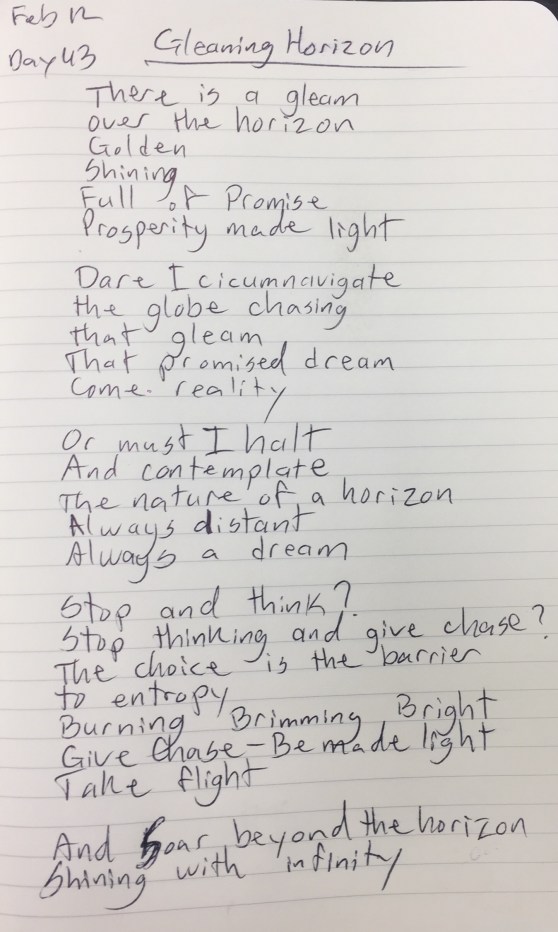 Feb 12
Day 43
Gleaning Horizon
There is a gleam
over the horizon
Golden
Shining
Full of Promise
Prosperity made light
Dare I cicumnavigate
the globe chasing
that gleam
That promised dream
Come reality
Or must I halt
And contemplate
The nature of a horizon
Always distant
Always a dream
Stop and think?
Stop thinking and give chase?
The choice is the barrier
to entropy
Burning Brimming Bright
Give Chase - Be made light
Take flight
And Soar beyond the horizon
Shining with infinity